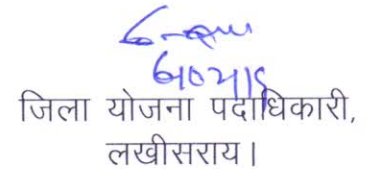 जिला योजना पदाधिकारी,
लखीसराय।